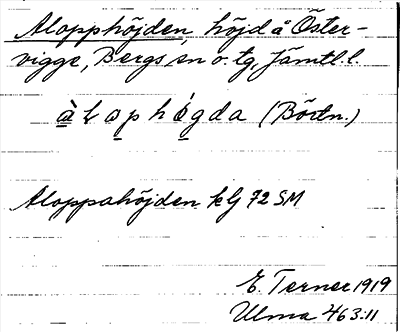 Alopphöjden, höjd å Öster-
vigge, Bergs sn o. tg, Jämtl. l.
àlophógda (Bödn.)
Aloppahöjden kbl 72 SM
E. Terner 1919
Ulma 463:11